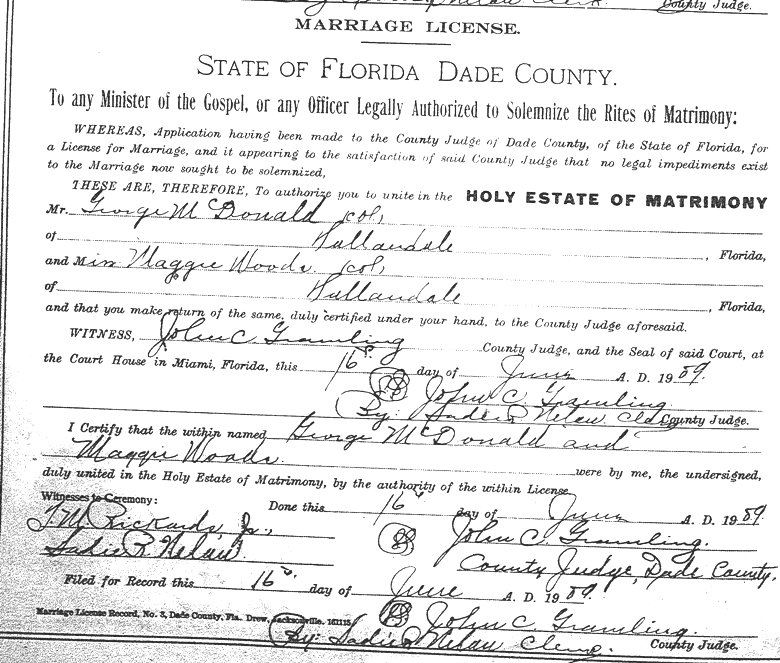 Clerk. County Judge.
MARRIAGE LICENSE.
STATE OF FLORIDA DADE COUNTY.
To any Minister of the Gospel, or any Officer Legally Authorized to Solemnize the Rites of Matrimony:
WHEREAS, Application having been made to the County Judge of Dade County, of the State of Florida, for
a License for Marriage, and it appearing to the satisfaction of said County Judge that no legal impediments exist
to the Marriage now sought to be solemnized,
THESE ARE, THEREFORE, To authorize you to unite in the HOLY ESTATE OF MATRIMONY
Mr. George McDonald col,
of Hallandale, Florida,
and Miss Maggie Woods. col,
of Hallandale, Florida,
and that you make return of the same, duly certified under your hand, to the County Judge aforesaid.
WITNESS, John C Gramling County Judge, and the Seal of said Court, at
the Court House in Miami, Florida, this 16" day of June A. D. 1909.
John C. Gramling.
By: Sadie R. County Judge.
I Certify that the within named George McDonald and
Maggie Woods. were by me, the undersigned,
duly united in the Holy Estate of Matrimony, by the authority of the within License.
Witnesses to Ceremony: Done this 16" day of June A. D. 1909.
T. M. Rickards, Jr., John C. Gramling.
Sadie R. County Judge, Dade County.
Filed for Record this 16" day of June A. D. 1909.
Marriage License Record, No. 3, Dade County, Fla. Drew, Jacksonville. John C Gramling
By: Sadie R County Judge.